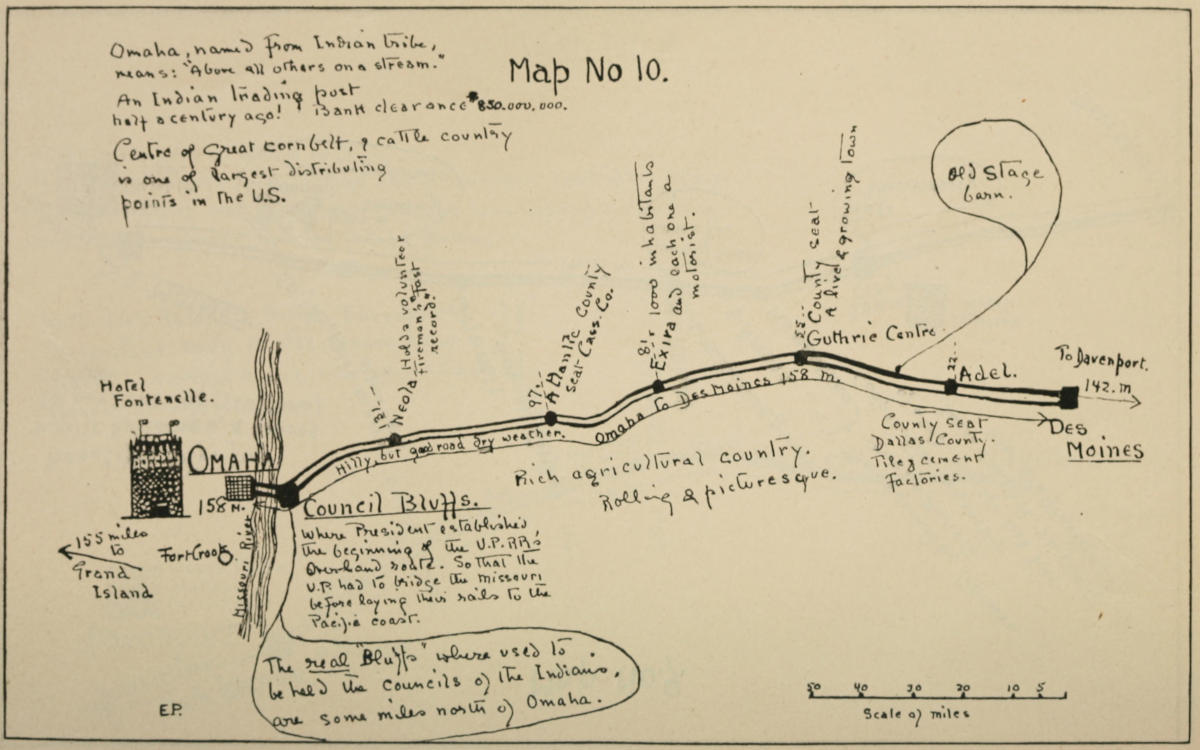 Map No 10.
Omaha, named from Indian tribe,
means: "Above all others on a stream."
An Indian trading post
half a century ago! Bank clearance $850.000.000.
Centre of great cornbelt, & cattle country
is one of largest distributing
points in the U.S.
Old Stage
barn.
131--
Neola Holds volunteer
firemen's "fast
record."
97--
Atlantic County
Seat-Cass. Co.
81-
Exira 1000 inhabitants
and each one a
motorist.
55--
County seat
A live & growing town
Guthrie Centre
22--
Adel.
County seat
Dallas County.
Tile & cement
factories.
To Davenport.
142. m
Des
Moines
Hotel
Fontenelle.
Omaha
158 M.
Hilly, but good road dry weather.
Omaha to Des Moines 158 m.
Rich agricultural country.
Rolling & picturesque.
Council Bluffs.
Where President established
the beginning of the U.P.RR's
Overland route. So that the
U.P. had to bridge the Missouri
before laying their rails to the
Pacific coast.
155 miles
to
Grand
Island
Fort Crook
Missouri River
The real "Bluffs" where used to
be held the councils of the Indians,
are some miles north of Omaha.
E.P.
50 40 30 20 10 5
Scale of miles